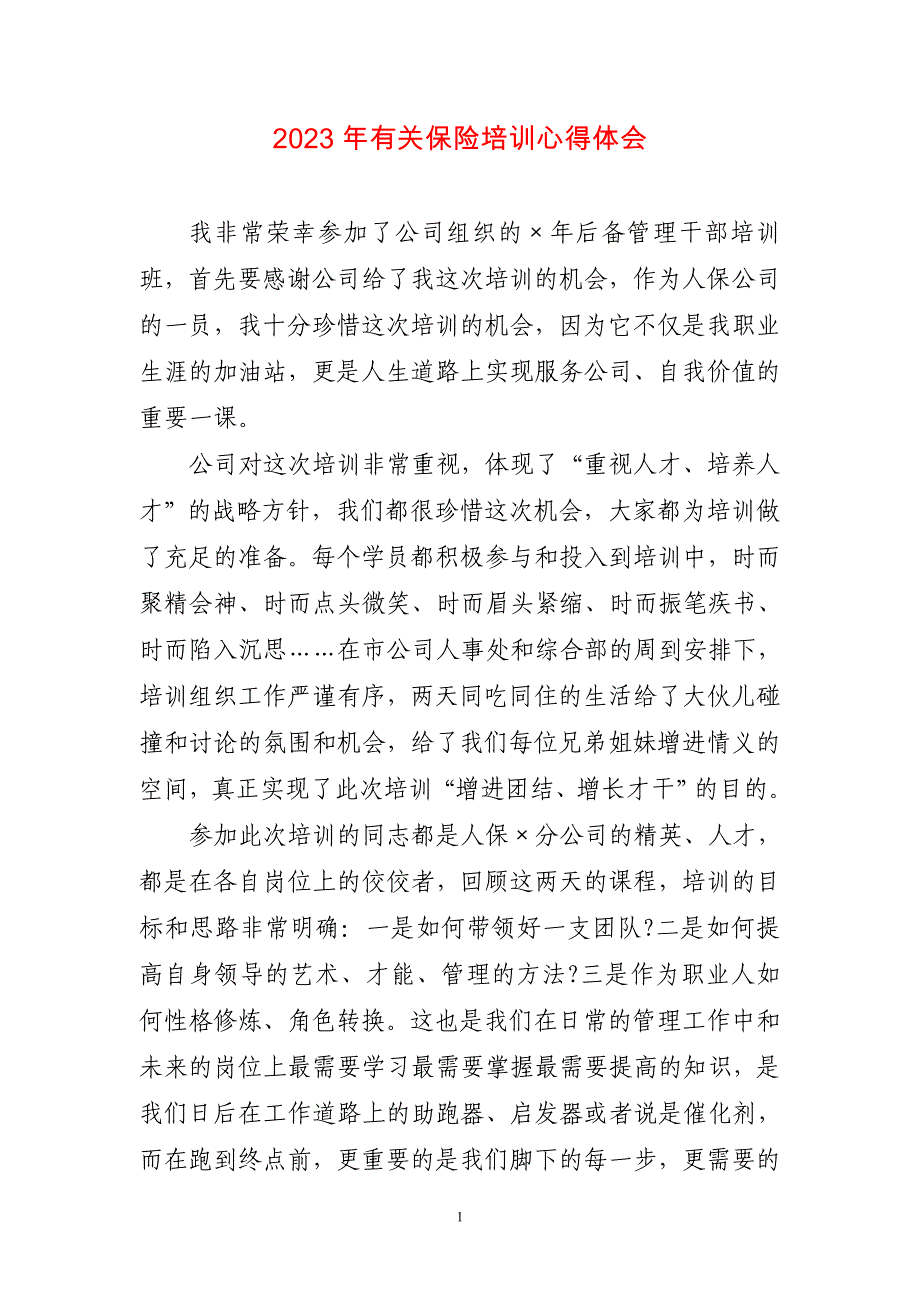 2023 年有关保险培训心得体会
我非常荣幸参加了公司组织的×年后备管理干部培训
班，首先要感谢公司给了我这次培训的机会，作为人保公司
的一员，我十分珍惜这次培训的机会，因为它不仅是我职业
生涯的加油站，更是人生道路上实现服务公司、自我价值的
重要一课。
公司对这次培训非常重视，体现了“重视人才、培养人
才”的战略方针，我们都很珍惜这次机会，大家都为培训做
了充足的准备。每个学员都积极参与和投入到培训中，时而
聚精会神、时而点头微笑、时而眉头紧缩、时而振笔疾书、
时而陷入沉思……在市公司人事处和综合部的周到安排下，
培训组织工作严谨有序，两天同吃同住的生活给了大伙儿碰
撞和讨论的氛围和机会，给了我们每位兄弟姐妹增进情义的
空间，真正实现了此次培训“增进团结、增长才干”的目的。
参加此次培训的同志都是人保×分公司的精英、人才，
都是在各自岗位上的佼佼者，回顾这两天的课程，培训的目
标和思路非常明确：一是如何带领好一支团队?二是如何提
高自身领导的艺术、才能、管理的方法?三是作为职业人如
何性格修炼、角色转换。这也是我们在日常的管理工作中和
未来的岗位上最需要学习最需要掌握最需要提高的知识，是
我们日后在工作道路上的助跑器、启发器或者说是催化剂，
而在跑到终点前，更重要的是我们脚下的每一步，更需要的
1